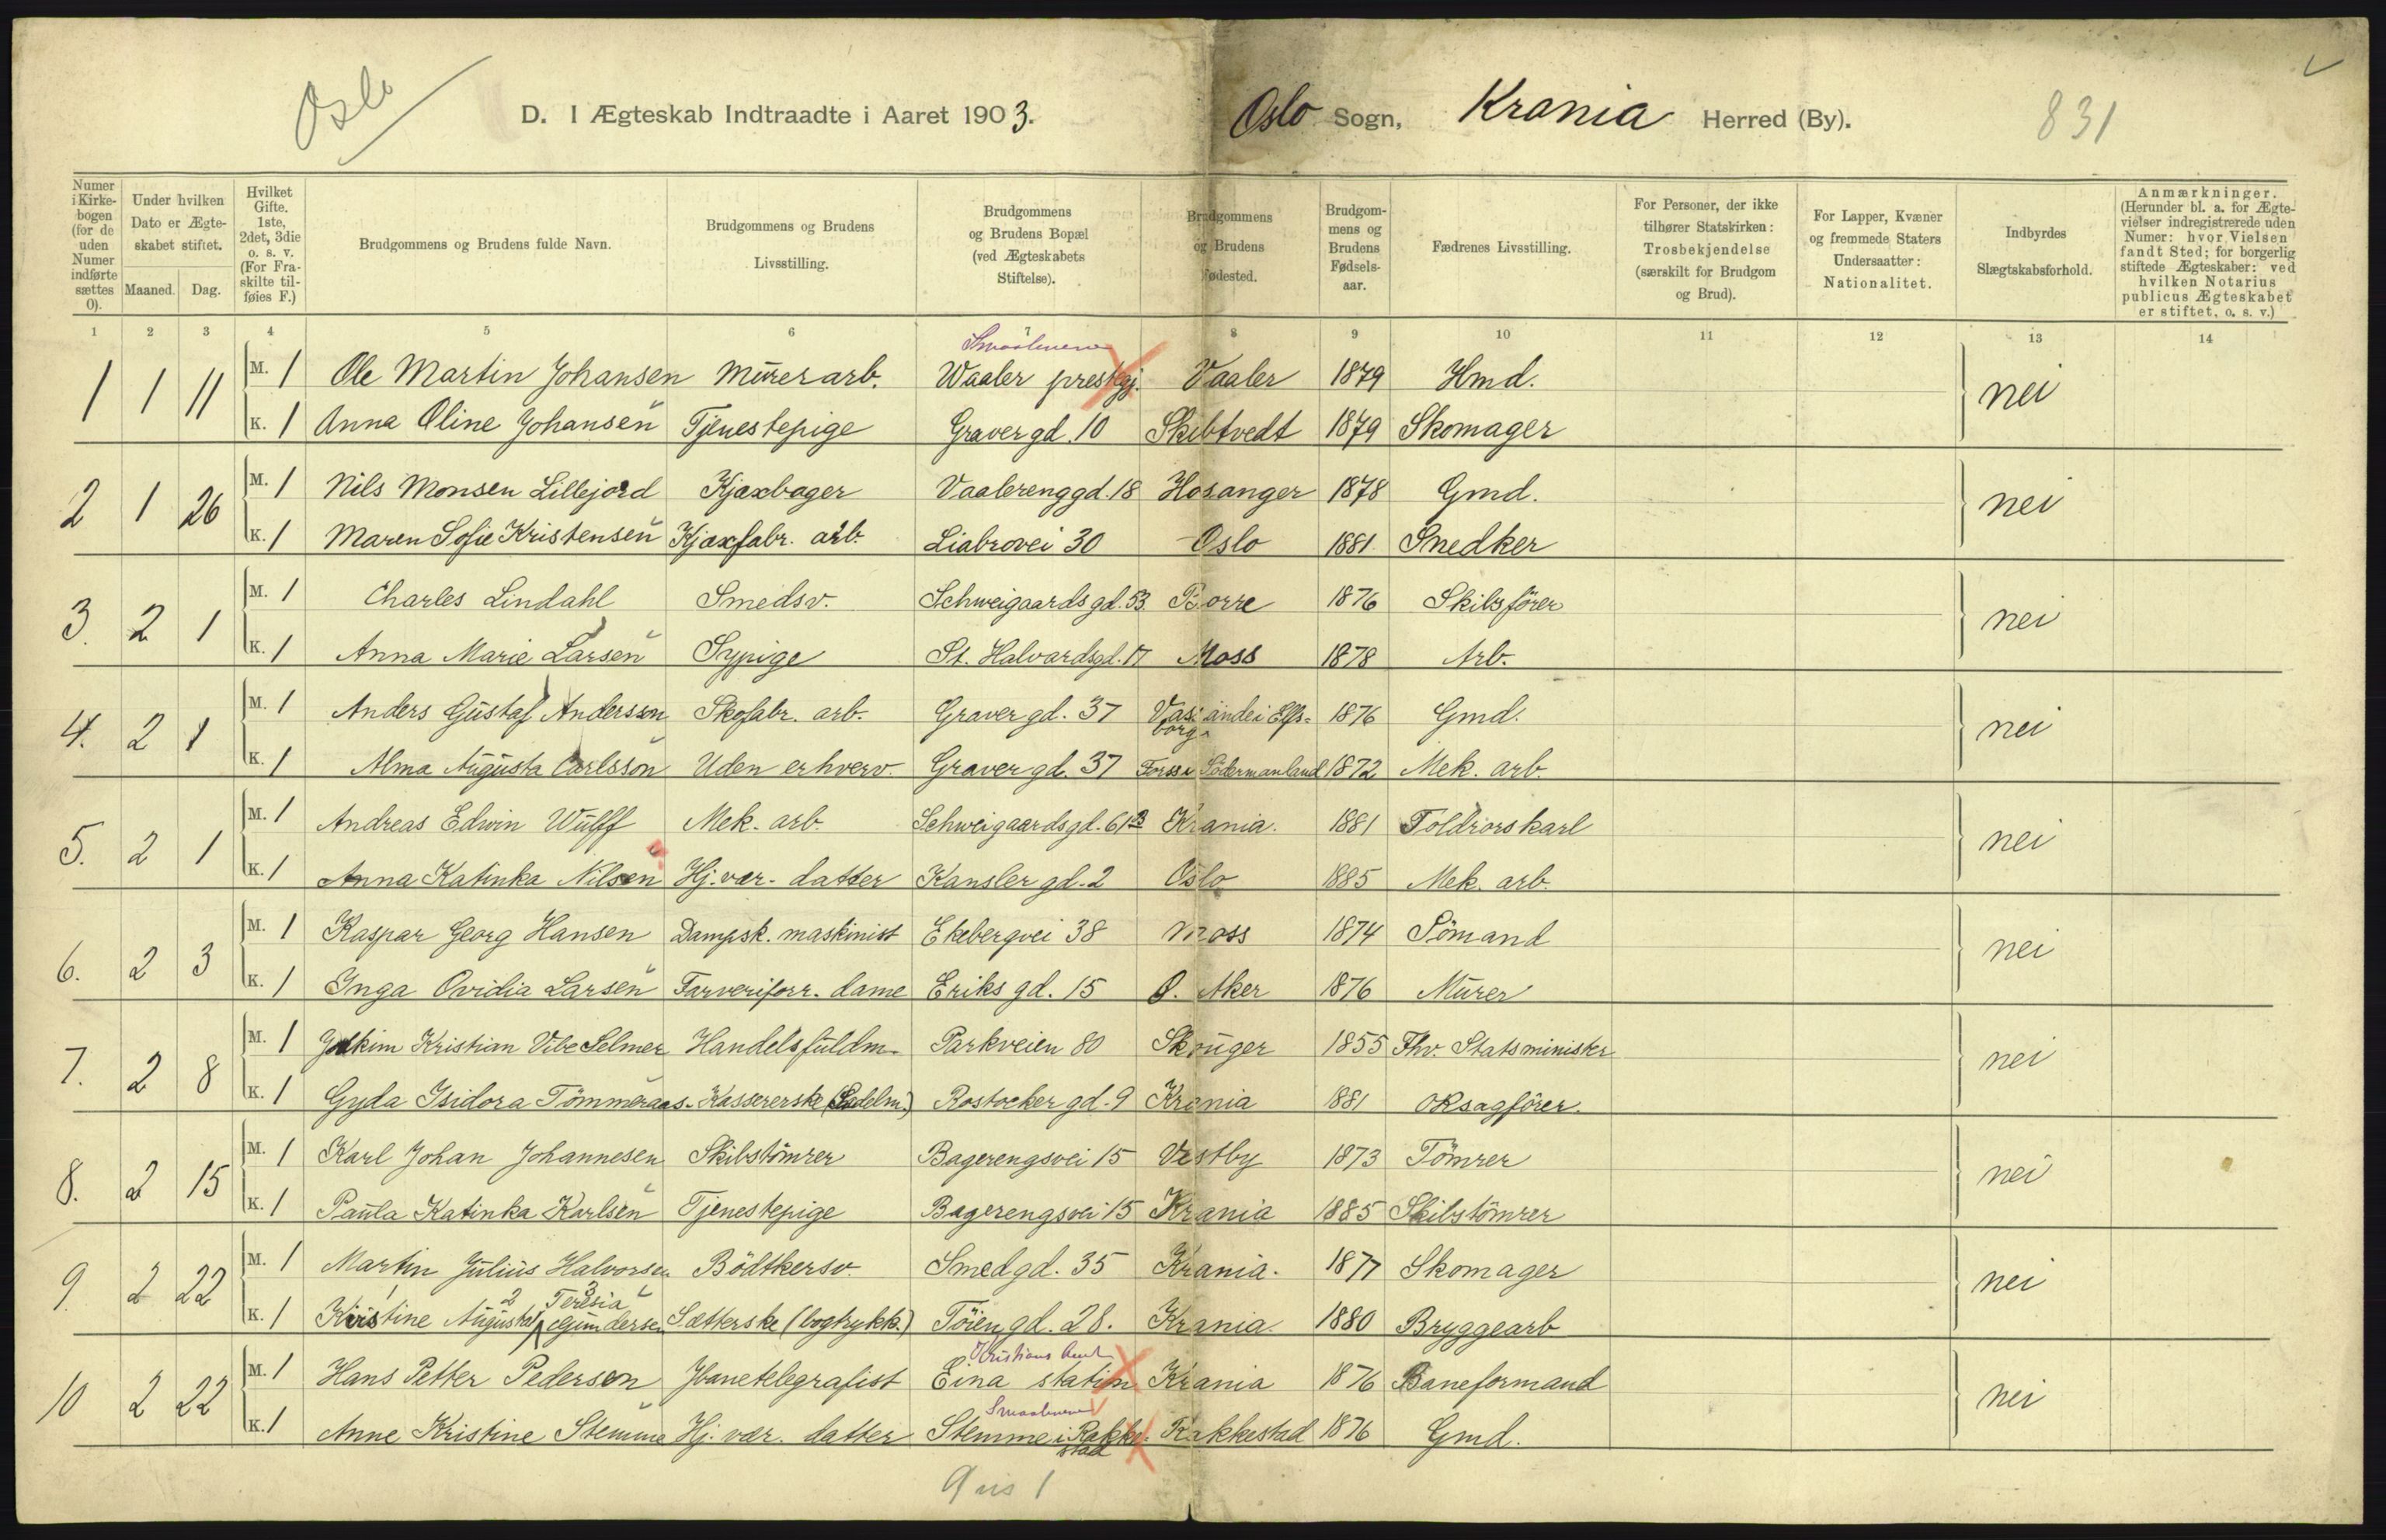 Oslo
D. I Ægteskab Indtraadte i Aaret 1903. Oslo Sogn, Krania Herred (By). 831
Numer i Kirkebogen (for de uden Numer indførte sættes 0).
Under hvilken Dato er Ægteskabet stiftet.
Maaned. Dag.
Hvilket Gifte. 1ste, 2det, 3die o. s. v. (For Fraskilte tilføies F.)
Brudgommens og Brudens fulde Navn.
Brudgommens og Brudens Livsstilling.
Brudgommens og Brudens Bopæl (ved Ægteskabets Stiftelse).
Brudgommens og Brudens Fødested.
Brudgommens og Brudens Fødselsaar.
Fædrenes Livsstilling.
For Personer, der ikke tilhører Statskirken: Trosbekjendelse (særskilt for Brudgom og Brud).
For Lapper, Kvæner og fremmede Staters Undersaatter: Nationalitet.
Indbyrdes Slægtskabsforhold.
Anmærkninger. (Herunder bl. a. for Ægtevielser indregistrerede uden Numer: hvor Vielsen fandt Sted; for borgerlig stiftede Ægteskaber: ved hvilken Notarius publicus Ægteskabet er stiftet, o. s. v.)
1 2 3 4 5 6 7 8 9 10 11 12 13 14
Smaalenene
1 1 11 M. 1 Ole Martin Johansen Murerarb. Waaler prestegj. Vaaler 1879 Hmd. nei
K. 1 Anna Oline Johansen Tjenestepige Gravergd. 10 Skibtvedt 1879 Skomager
2 1 26 M. 1 Nils Monsen Lillejord Kjæxbager Vaalerenggd. 18 Hosanger 1878 Gmd. nei
K. 1 Maren Sofie Kristensen Kjæxfabr. arb. Liabrovei 30 Oslo 1881 Snedker
3. 2 1 M. 1 Charles Lindahl Smedsv. Schweigaardsgd. 53 Borre 1876 Skibsfører nei
K. 1 Anna Marie Larsen Sypige St. Halvardsgd. 17 Moss 1878 Arb.
4. 2 1 M. 1 Anders Gustaf Andersson Skofabr. arb. Gravergd. 37 Vasände i Elfsborg 1876 Gmd. nei
K. 1 Alma Augusta Carlsson Uden erhverv. Gravergd. 37 Forssa Södermanland 1872 Mek. arb.
5. 2 1 M. 1 Andreas Edwin Wulff Mek. arb. Schweigaardsgd. 61 B Krania. 1881 Toldrorskarl nei
K. 1 Anna Katinka Nilsen Hj. vær. datter Kanslergd. 2 Oslo 1885 Mek. arb.
6. 2 3 M. 1 Kaspar Georg Hansen Dampsk. maskinist Ekebergvei 38 Moss 1874 Sömand nei
K. 1 Inga Ovidia Larsen Farveriforr. dame Eriks gd. 15 Ø. Aker 1876 Murer
7. 2 8 M. 1 Joakim Kristian Vibe Selmer Handelsfuldm. Parkveien 80 Skouger 1855 Fhv. Statsminister nei
K. 1 Gyda Isidora Tömmeraas. Kassererske Rostockergd. 9 Krania 1881 OKsagfører.
8. 2 15 M. 1 Karl Johan Johannesen Skibstömrer Bagerengsvei 15 Vestby 1873 Tömrer nei
K. 1 Paula Katinka Karlsen Tjenestepige Bagerengsvei 15 Krania 1885 Skibstömrer
9. 2 22 M. 1 Martin Julius Halvorsen Bödtkersv. Smedgd. 35 Krania. 1877 Skomager nei
2 3 Teresia
K. 1 Kristine Augusta Gundersen Sætterske (bogtrykk.) Töiengd. 28. Krania. 1880 Bryggearb
Kristians Amt
10 2 22 M. 1 Hans Petter Pedersen Jbanetelegrafist Eina station Krania 1876 Baneformand nei
Smaalenene
K. 1 Anne Kristine Stemme Hj. vær. datter Stemme i Rakkestad Rakkestad 1876 Gmd.